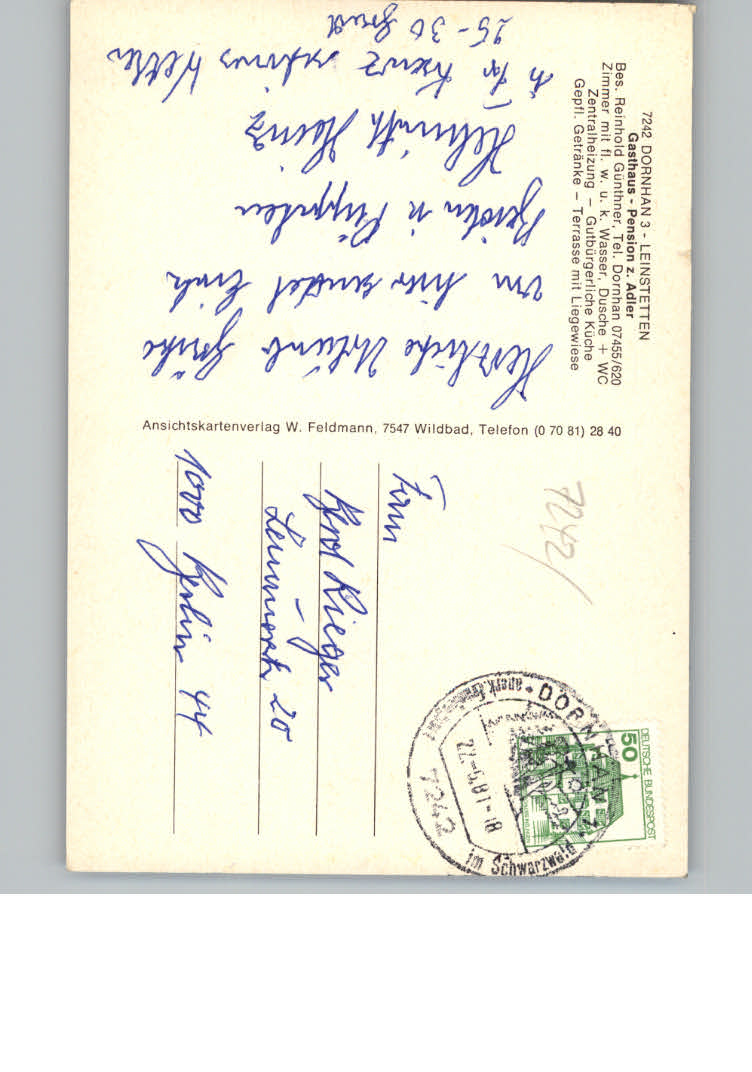 7242 DORNHAN 3 - LEINSTETTEN
Gasthaus - Pension z. Adler
Bes. Reinhold Günthner, Tel. Dornhan 07455/620
Zimmer mit fl. w. u. k. Wasser, Dusche + WC
Zentralheizung – Gutbürgerliche Küche
Gepfl. Getränke – Terrasse mit Liegewiese
Herzliche Urlaub Grüße
von hier sendet Euch
Helmuth Heinz
25-30 Grad
Ansichtskartenverlag W. Feldmann, 7547 Wildbad, Telefon (0 70 81) 28 40
7242/
DEUTSCHE BUNDESPOST
50
DORNHAN
22.-5.81-18
7242
im Schwarzwald
Rieger
20
1000 Berlin 44